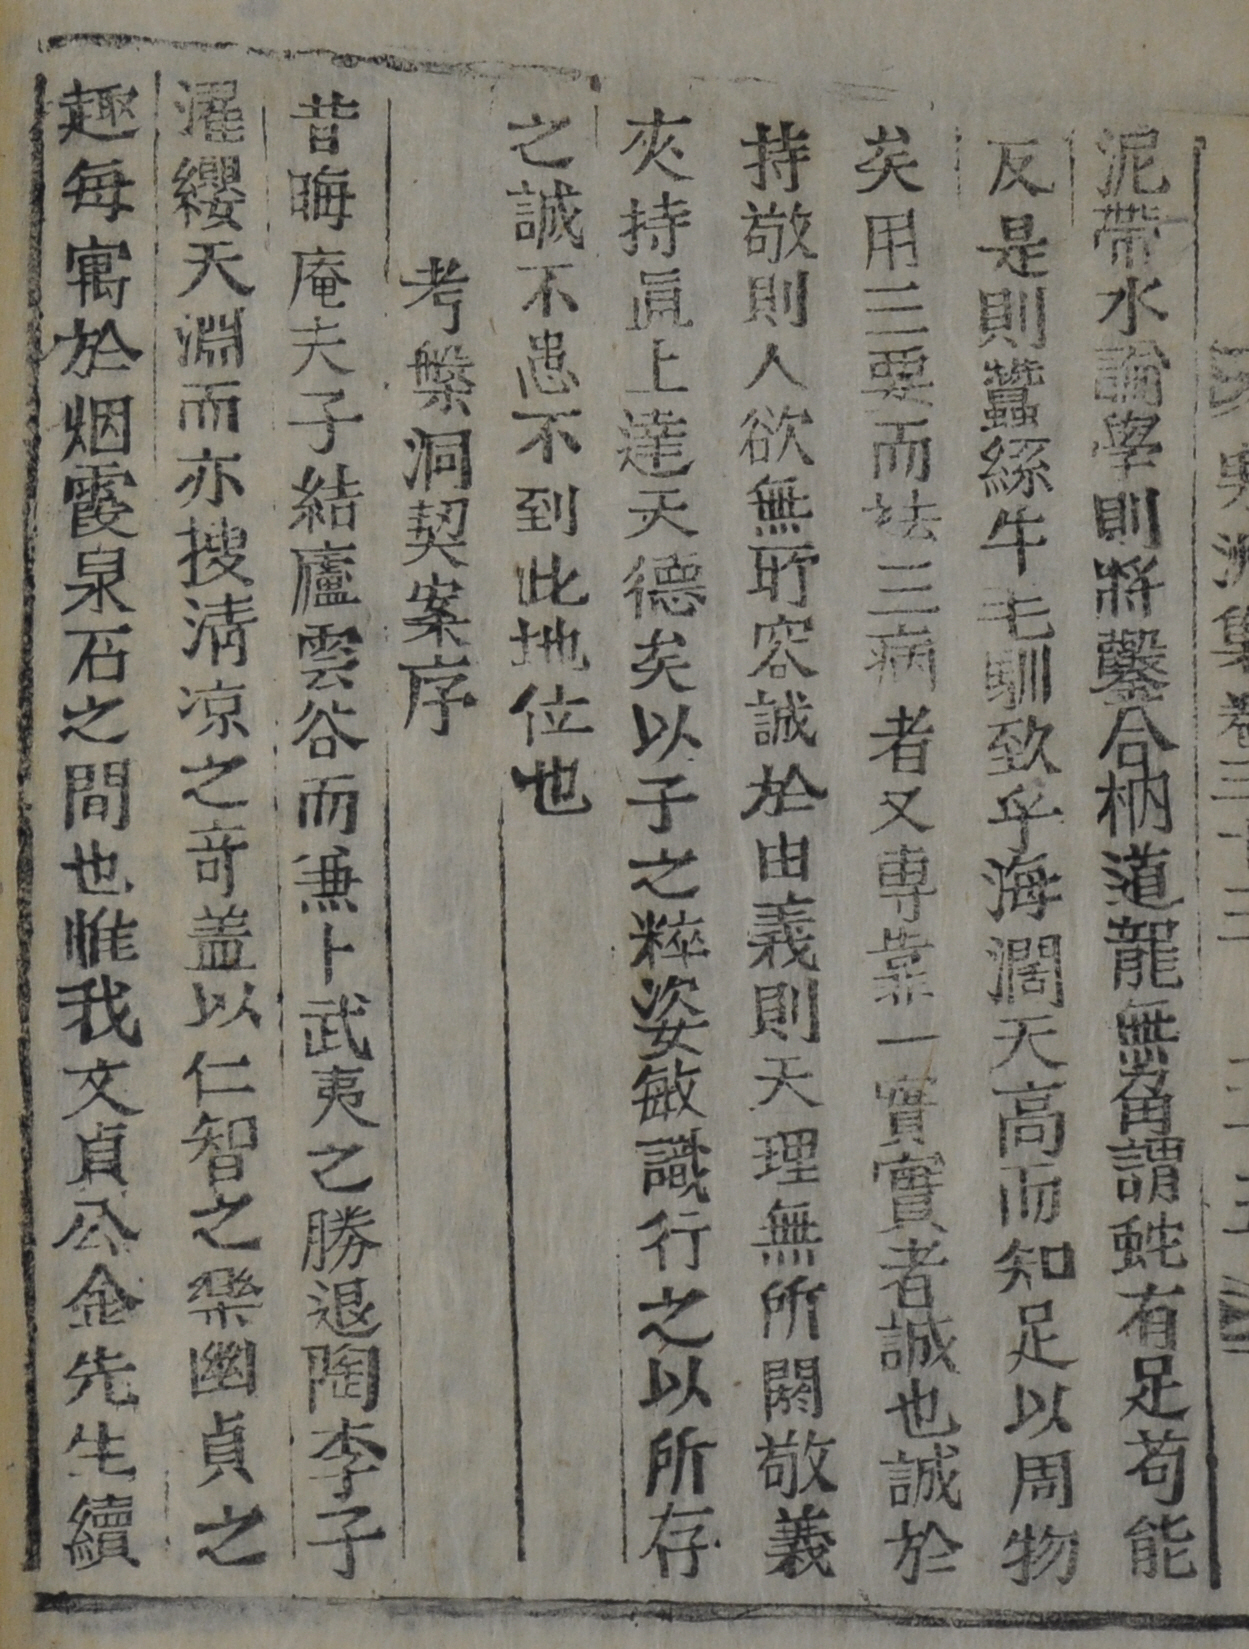 泥帶水論學則將鑿合枘道龍無角謂蛇有足苟能
反是則蠶絲牛毛馴致乎海濶天高而知足以周物
矣用三要而祛三病者又專靠一實實者誠也誠於
持敬則人欲無所容誠於由義則天理無所闕敬義
夾持眞上達天德矣以子之粹姿敏識行之以所存
之誠不患不到此地位也
考槃洞契案序
昔晦庵夫子結廬雲谷而兼卜武夷之勝退陶李子
濯纓天淵而亦搜淸凉之奇盖以仁智之樂幽貞之
趣每寓於烟霞泉石之間也惟我文貞公金先生續